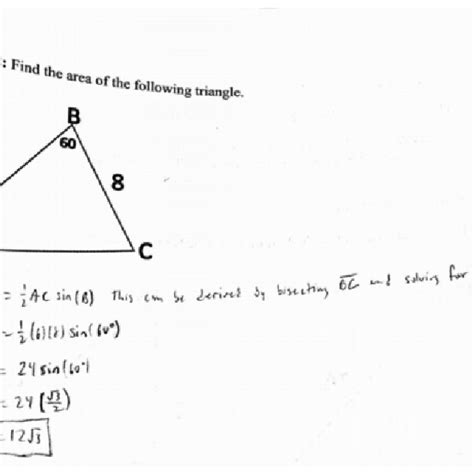 : Find the area of the following triangle.
B
60
8
C
= 1/2 AC sin(B) This can be derived by bisecting BC and solving for
= 1/2 (6)(8) sin(60°)
= 24 sin(60°)
= 24 (√3/2)
= 12√3